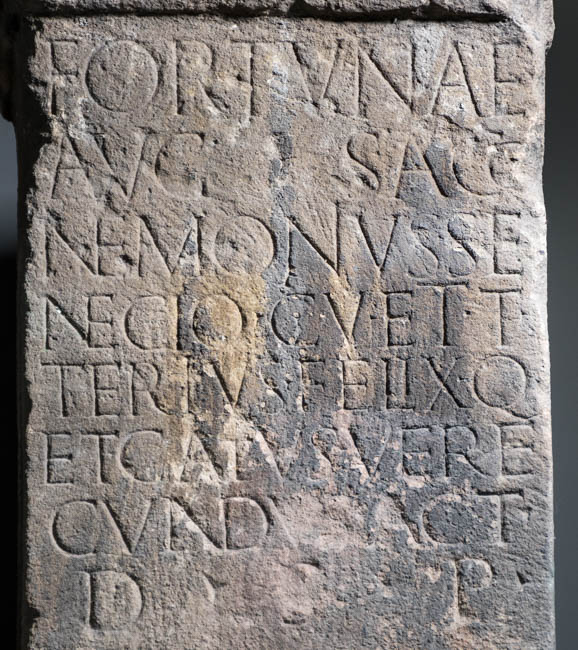 FORTVNAE
AVG SAC
NEMONVS SE
NECIO CV ET T
TERTIVS FELIX Q
ET CATVS VERE
CVNDVS ACT
D P